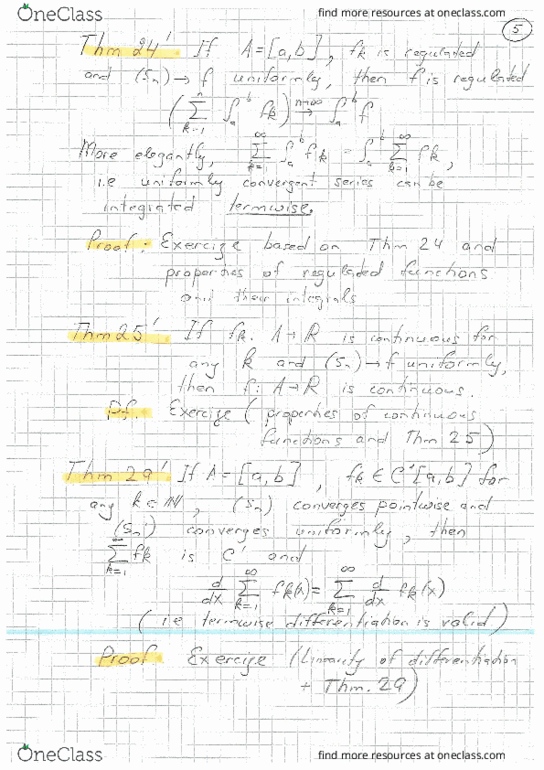 OneClass
find more resources at oneclass.com
5
Thm 24' If A=[a,b], fk is regulated
and (Sn) → f uniformly, then f is regulated
(∑_{k=1}^{n} ∫_a^b fk) →^{n→∞} ∫_a^b f
More elegantly, ∑_{k=1}^{∞} ∫_a^b fk = ∫_a^b ∑_{k=1}^{∞} fk,
i.e uniformly convergent series can be
integrated termwise.
Proof: Exercize based on Thm 24 and
properties of regulated functions
and their integrals
Thm 25' If fk: A→R is continuous for
any k and (Sn)→f uniformly,
then f: A→R is continuous.
Pf. Exercize (properties of continuous
functions and Thm 25)
Thm 29' If A=[a,b], fk ∈ C'[a,b] for
any k ∈ N, (Sn) converges pointwise and
(Sn') converges uniformly, then
∑_{k=1}^{∞} fk is C' and
d/dx ∑_{k=1}^{∞} fk(x) = ∑_{k=1}^{∞} d/dx fk(x)
(i.e termwise differentiation is valid)
Proof Exercize (Linearity of differentiation
+ Thm. 29)
OneClass
find more resources at oneclass.com